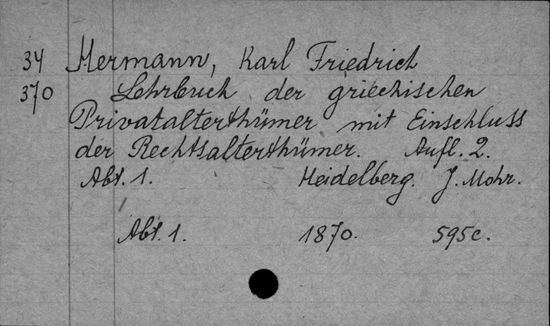 34 Hermann, Karl Friedrich
370 Lehrbuch der griechischen
Privatalterthümer mit Einschluss
der Rechtsalterthümer. Aufl. 2.
Abt. 1. Heidelberg. J. Mohr.
Abt. 1. 1870. 595c.